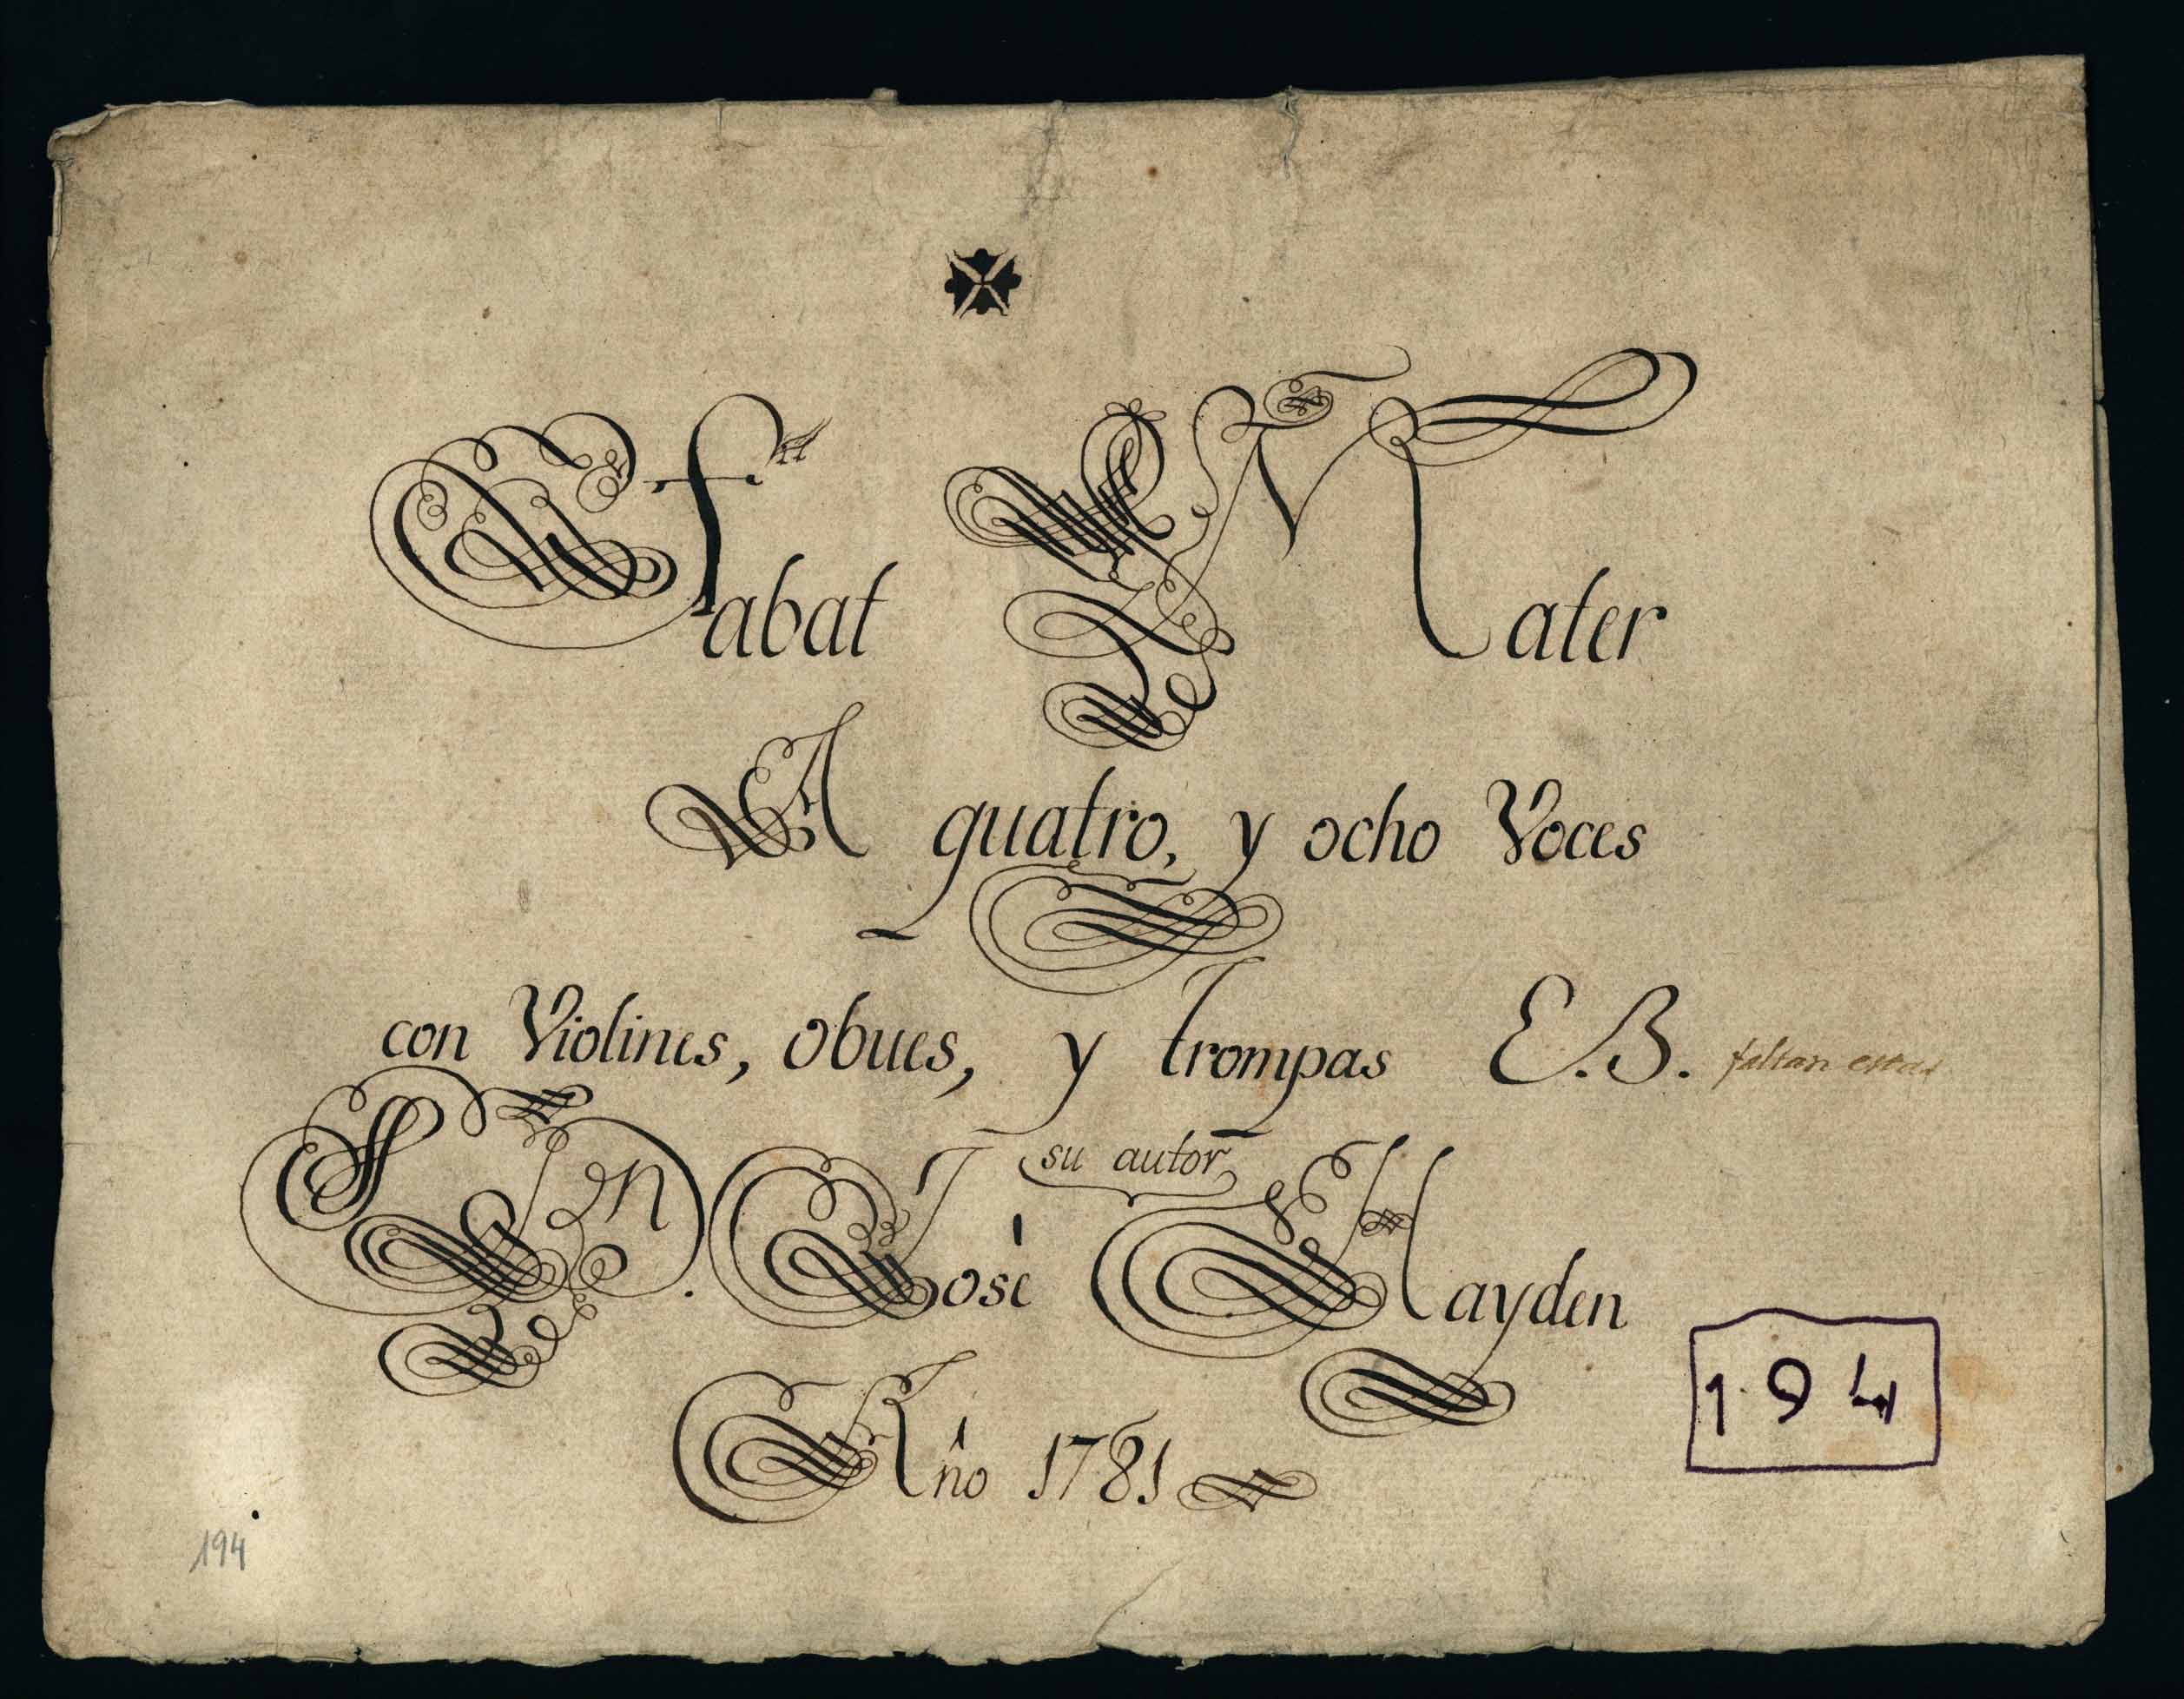 Stabat Mater
A quatro, y ocho Voces
con Violines, obues, y trompas E.B. faltan estas
su autor
Dn. José Hayden
Año 1781
194
194